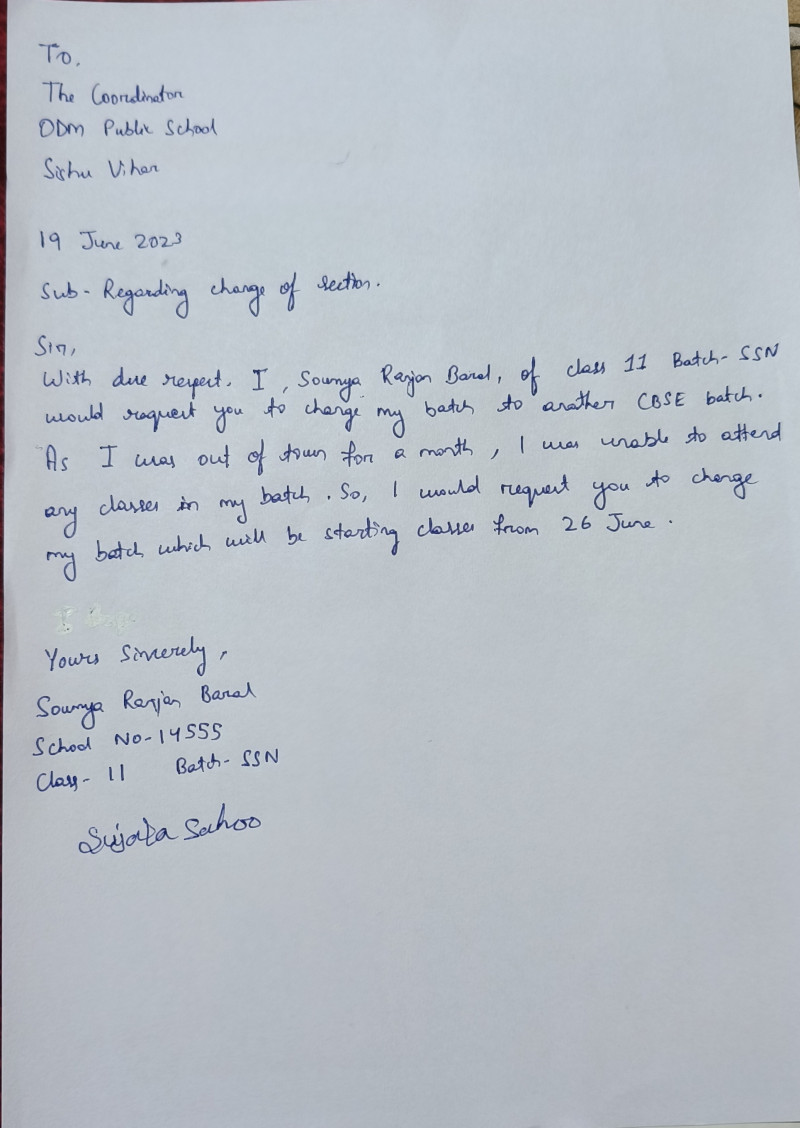 To,
The Coordinator
ODM Public School
Sishu Vihar
19 June 2023
Sub- Regarding change of section.
Sir,
With due respect. I, Soumya Ranjan Baral, of class 11 Batch- SSN
would request you to change my batch to another CBSE batch.
As I was out of town for a month, I was unable to attend
any classes in my batch. So, I would request you to change
my batch which will be starting classes from 26 June.
Yours Sincerely,
Soumya Ranjan Baral
School No-14555
Class- 11 Batch- SSN
Sujata Sahoo